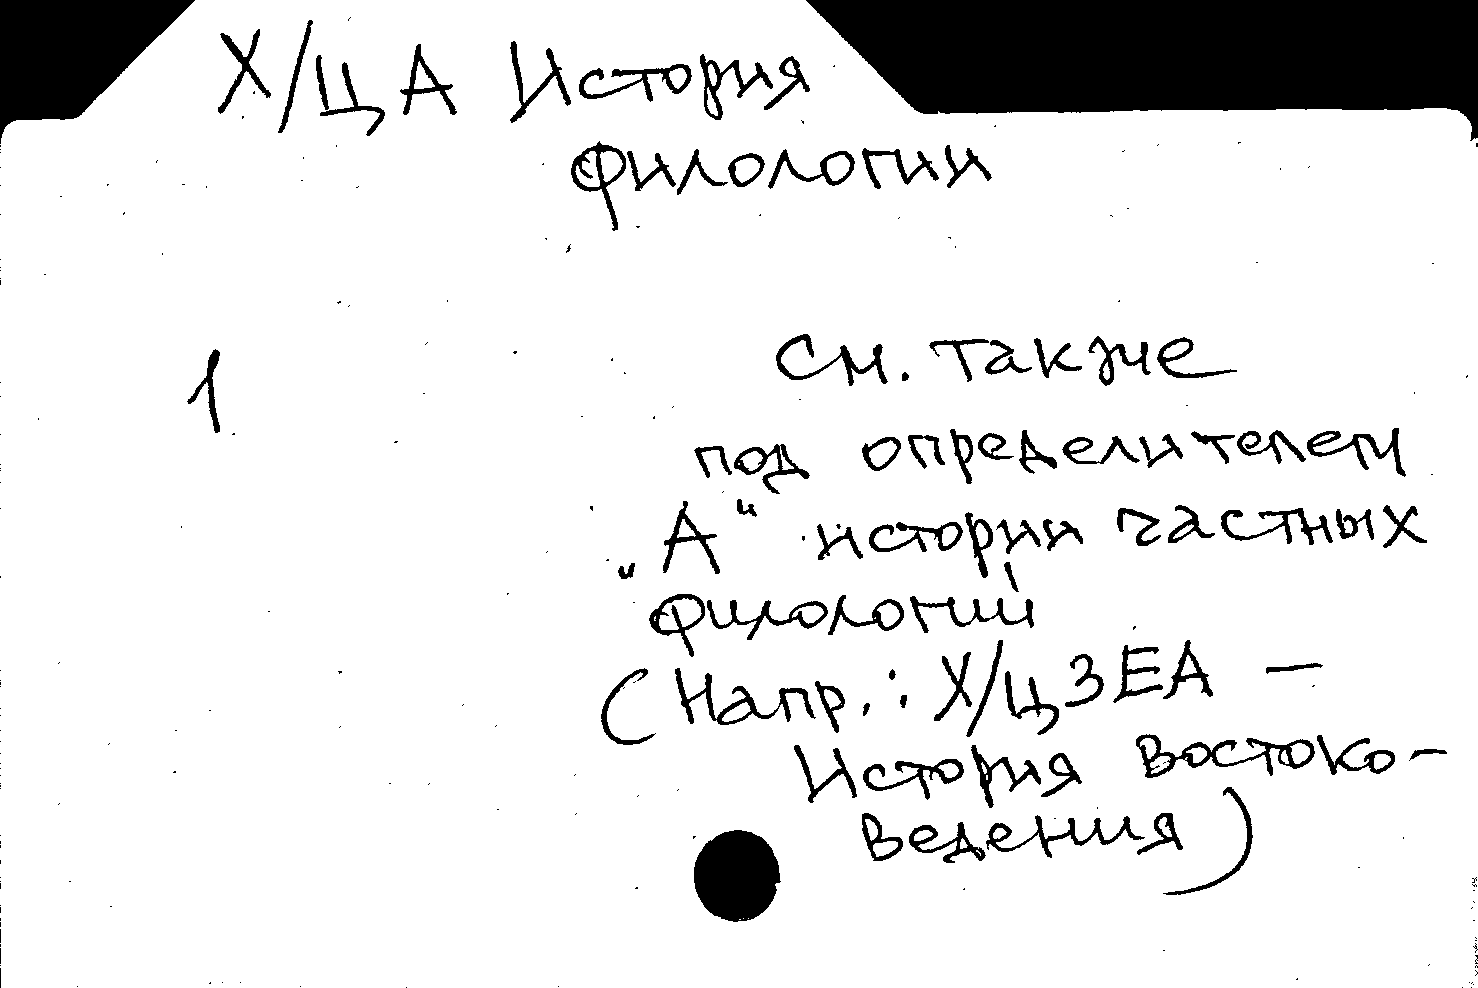 Х/Ц А История
филологии
1
См. также
под определителем
„А“ истории частных
филологий
(Напр.: Х/Ц3ЕА —
История востоко-
ведения)